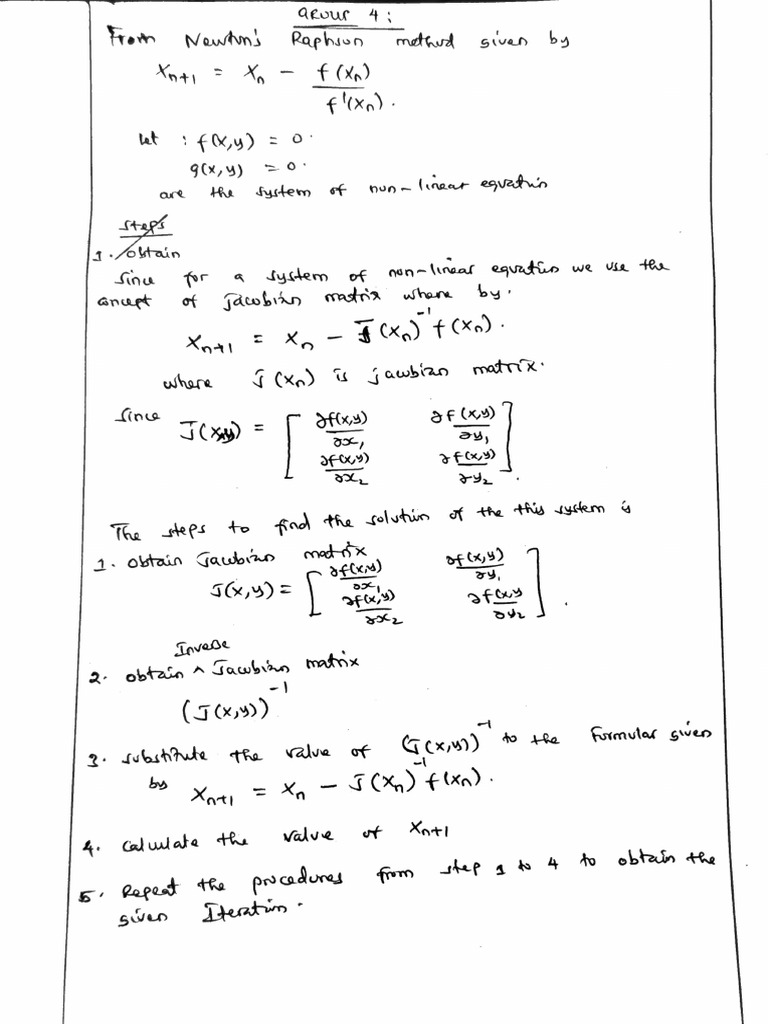 GROUP 4:
From Newton's Raphson method given by
Xn+1 = Xn - f(Xn)
f'(Xn).
let : f(x,y) = 0.
g(x,y) = 0.
are the system of non-linear equation
steps
1. obtain
Since for a system of non-linear equation we use the
concept of Jacobian matrix where by.
Xn+1 = Xn - J(Xn)⁻¹ f(Xn).
where J(Xn) is jacobian matrix.
Since J(x,y) = [ ∂f(x,y)/∂x1 ∂f(x,y)/∂y1
∂f(x,y)/∂x2 ∂f(x,y)/∂y2 ].
The steps to find the solution of the this system is
1. obtain Jacobian matrix
J(x,y) = [ ∂f(x,y)/∂x1 ∂f(x,y)/∂y1
∂f(x,y)/∂x2 ∂f(x,y/∂y2 ].
Inverse
2. obtain ^ Jacobian matrix
(J(x,y))⁻¹
3. substitute the value of (J(x,y))⁻¹ to the Formular given
by Xn+1 = Xn - J(Xn)⁻¹ f(Xn).
4. Calculate the value of Xn+1
5. Repeat the procedures from step 1 to 4 to obtain the
given Iteration.